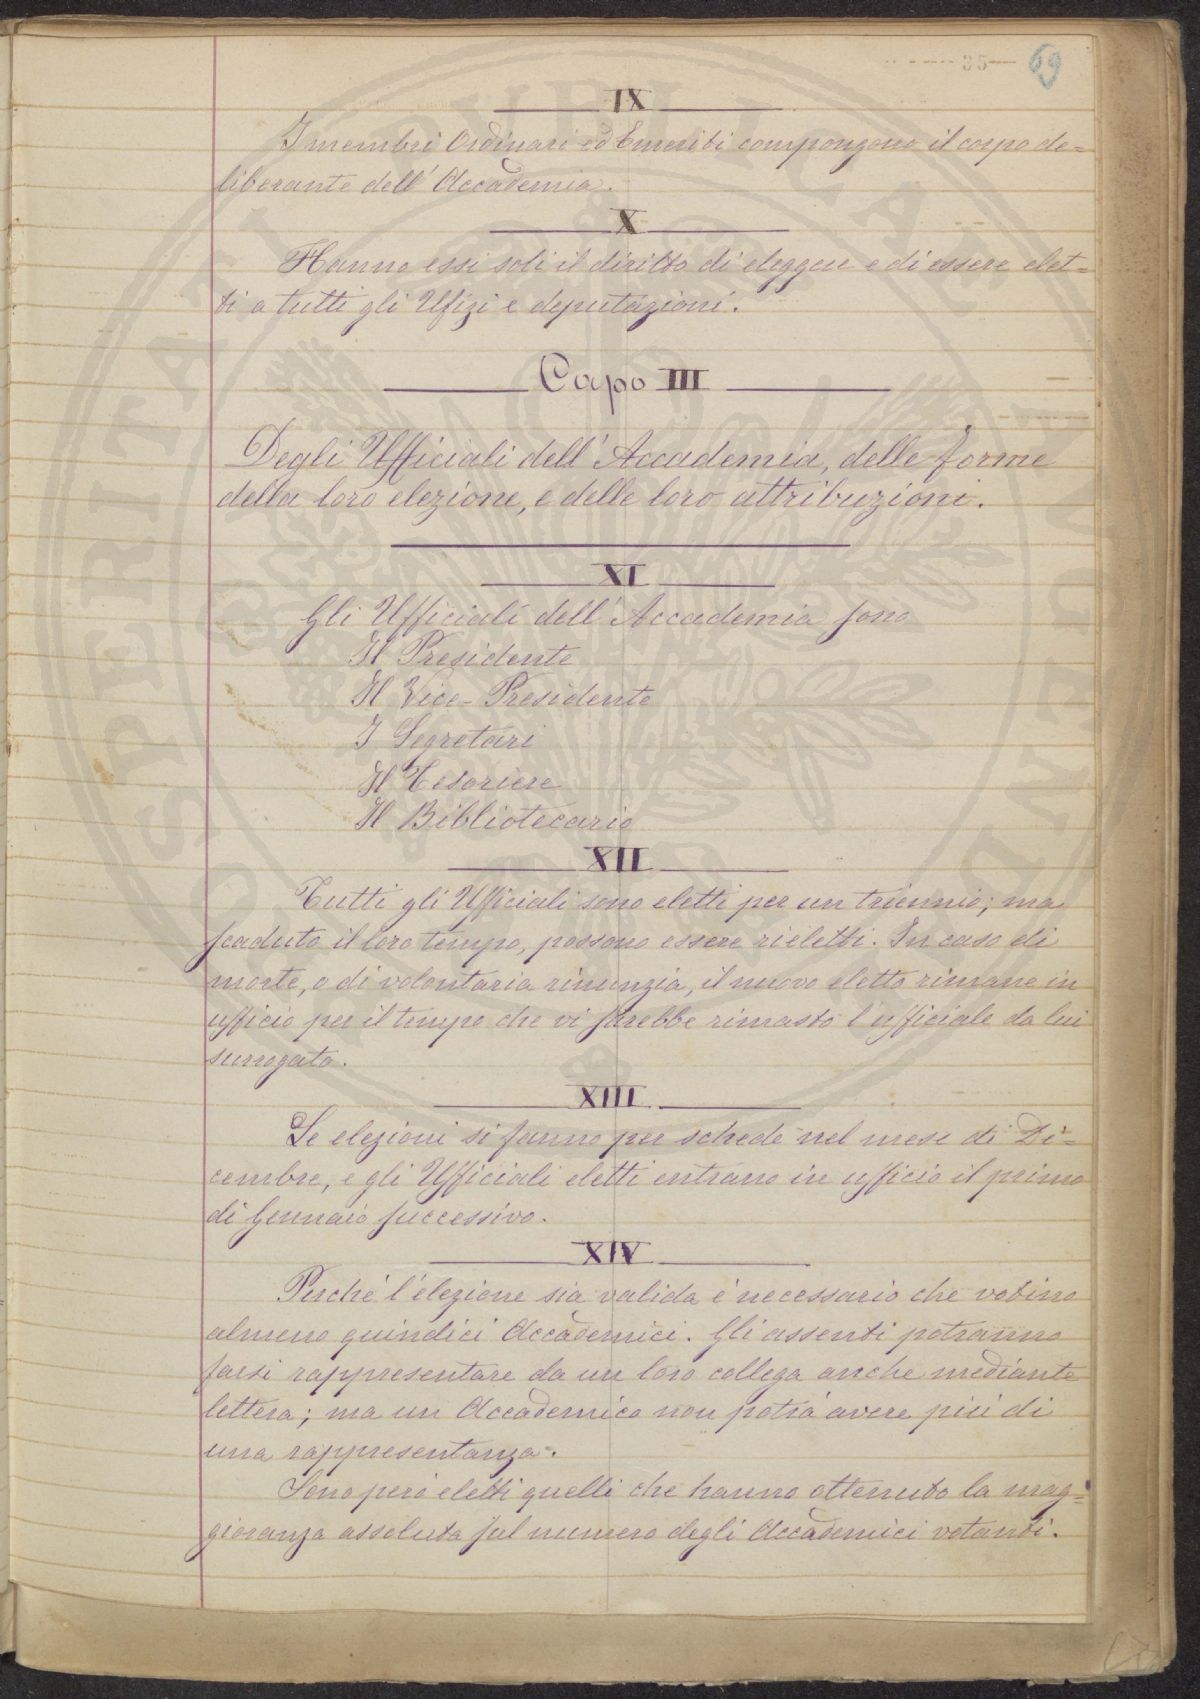 35
69
IX
I membri Ordinari ed Emeriti compongono il corpo de=
liberante dell' Accademia.
X
Hanno essi soli il diritto di eleggere e di essere elet=
ti a tutti gli Ufizi e deputazioni.
Capo III
Degli Ufficiali dell' Accademia, delle forme
della loro elezione, e delle loro attribuzioni.
XI
Gli Ufficiali dell' Accademia sono
Il Presidente
Il Vice-Presidente
I Segretari
Il Tesoriere
Il Bibliotecario
XII
Tutti gli Ufficiali sono eletti per un triennio; ma
scaduto il loro tempo, possono essere rieletti. In caso di
morte, o di volontaria rinunzia, il nuovo eletto rimane in
ufficio per il tempo che vi sarebbe rimasto l'ufficiale da lui
surrogato.
XIII
Le elezioni si fanno per schede nel mese di Di=
cembre, e gli Ufficiali eletti entrano in ufficio il primo
di Gennaio successivo.
XIV
Perché l'elezione sia valida é necessario che votino
almeno quindici Accademici. Gli assenti potranno
farsi rappresentare da un loro collega anche mediante
lettera; ma un Accademico non potrá avere piú di
una rappresentanza.
Sono peró eletti quelli che hanno ottenuto la mag=
gioranza assoluta sul numero degli Accademici votanti.